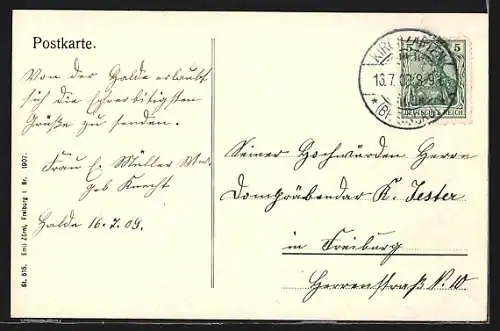 Postkarte.
Von der Halde erlaubt
sich die Ehrerbitigsten
Grüße zu senden.
Frau E. Müller Wwe.
geb Knecht
Halde 16.7.09.
Bs. 515. Emil Zürn, Freiburg i. Br. 1907.
KIRCHZARTEN
16.7.09. 8-9
5
DEUTSCHES REICH
Seiner Hochwürden Herrn
Dompräbendar K. Jester
in Freiburg
Herrenstraß N. 10